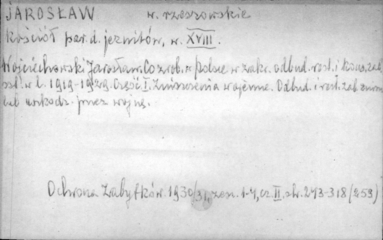 JAROSŁAW w. rzeszowskie
Kościół par. d. jezuitów, w. XVIII.
Wojciechowski Jarosław. Co zrob. w Polsce w zakr. odbud. rest. i kons. zab.
szt. w l. 1919-1929. Część I. Zniszczenia wojenne. Odbud. i rest. zab. znisz.
lub uszkodz. przez wojnę.
Ochrona Zabytków. 1930/31, zesz. 1-4, cz. II. str. 273-318 (253)